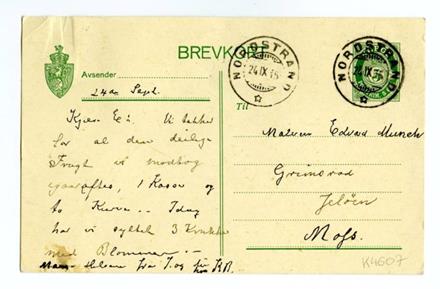 BREVKORT
NORDSTRAND
24 IX 35
NORDSTRAND
24 IX 35
Avsender
24de Sept.
Kjære E! Vi takker
for al den deilige
Frugt vi modtog
igaaraftes, 1 Kasse og
to Kurve.. Idag
har vi syltet 3
med Blommer
Hilsen fra I. og
Til
Maleren Edvard Munch
Grimsrød
Jeløen
Moss.
K4607